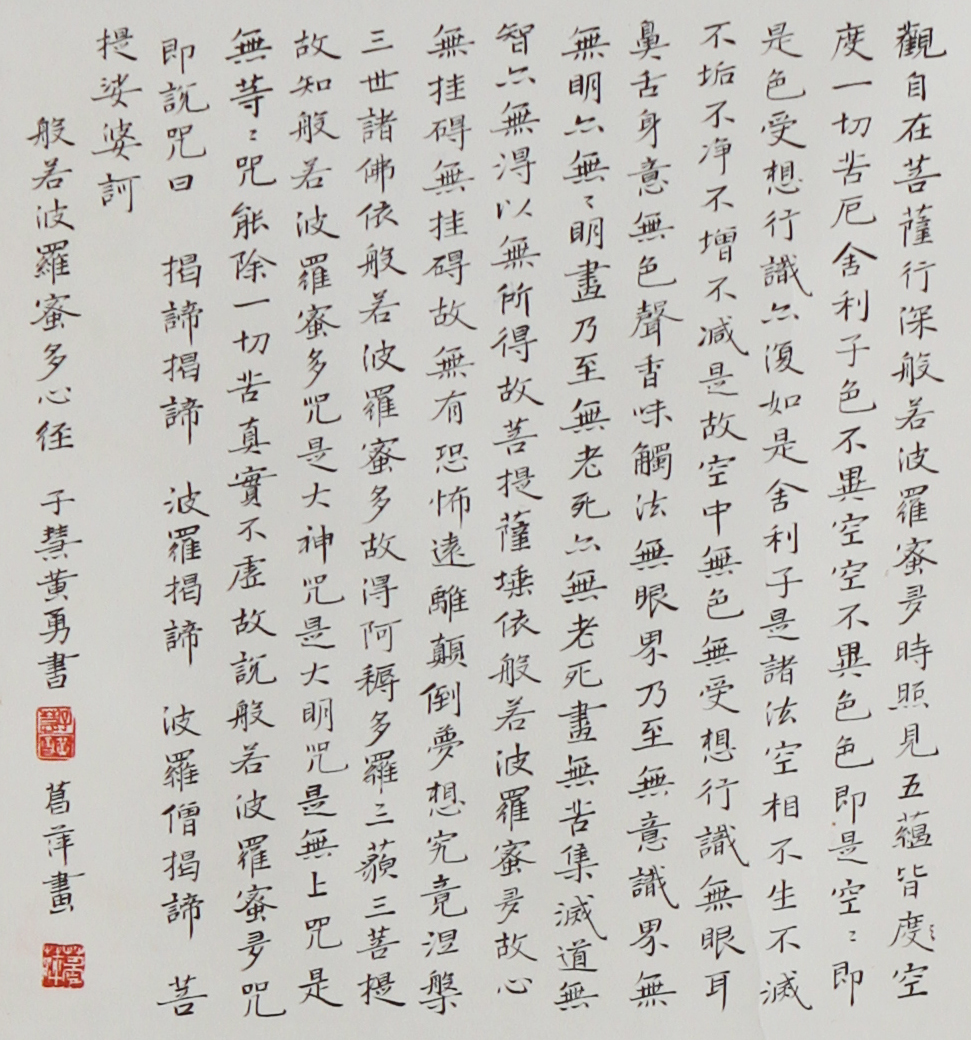 觀自在菩薩行深般若波羅蜜多時照見五蘊皆度空
度一切苦厄舍利子色不異空空不異色色即是空〻即
是色受想行識亦復如是舍利子是諸法空相不生不滅
不垢不净不增不減是故空中無色無受想行識無眼耳
鼻舌身意無色聲香味觸法無眼界乃至無意識界無
無明亦無〻明盡乃至無老死亦無老死盡無苦集滅道無
智亦無得以無所得故菩提薩埵依般若波羅蜜多故心
無挂碍無挂碍故無有恐怖遠離顛倒夢想究竟涅槃
三世諸佛依般若波羅蜜多故得阿耨多羅三藐三菩提
故知般若波羅蜜多咒是大神咒是大明咒是無上咒是
無等〻咒能除一切苦真實不虛故說般若波羅蜜多咒
即說咒曰 揭諦揭諦 波羅揭諦 波羅僧揭諦 菩
提娑婆訶
般若波羅蜜多心経 子慧黄勇書 菖萍畫